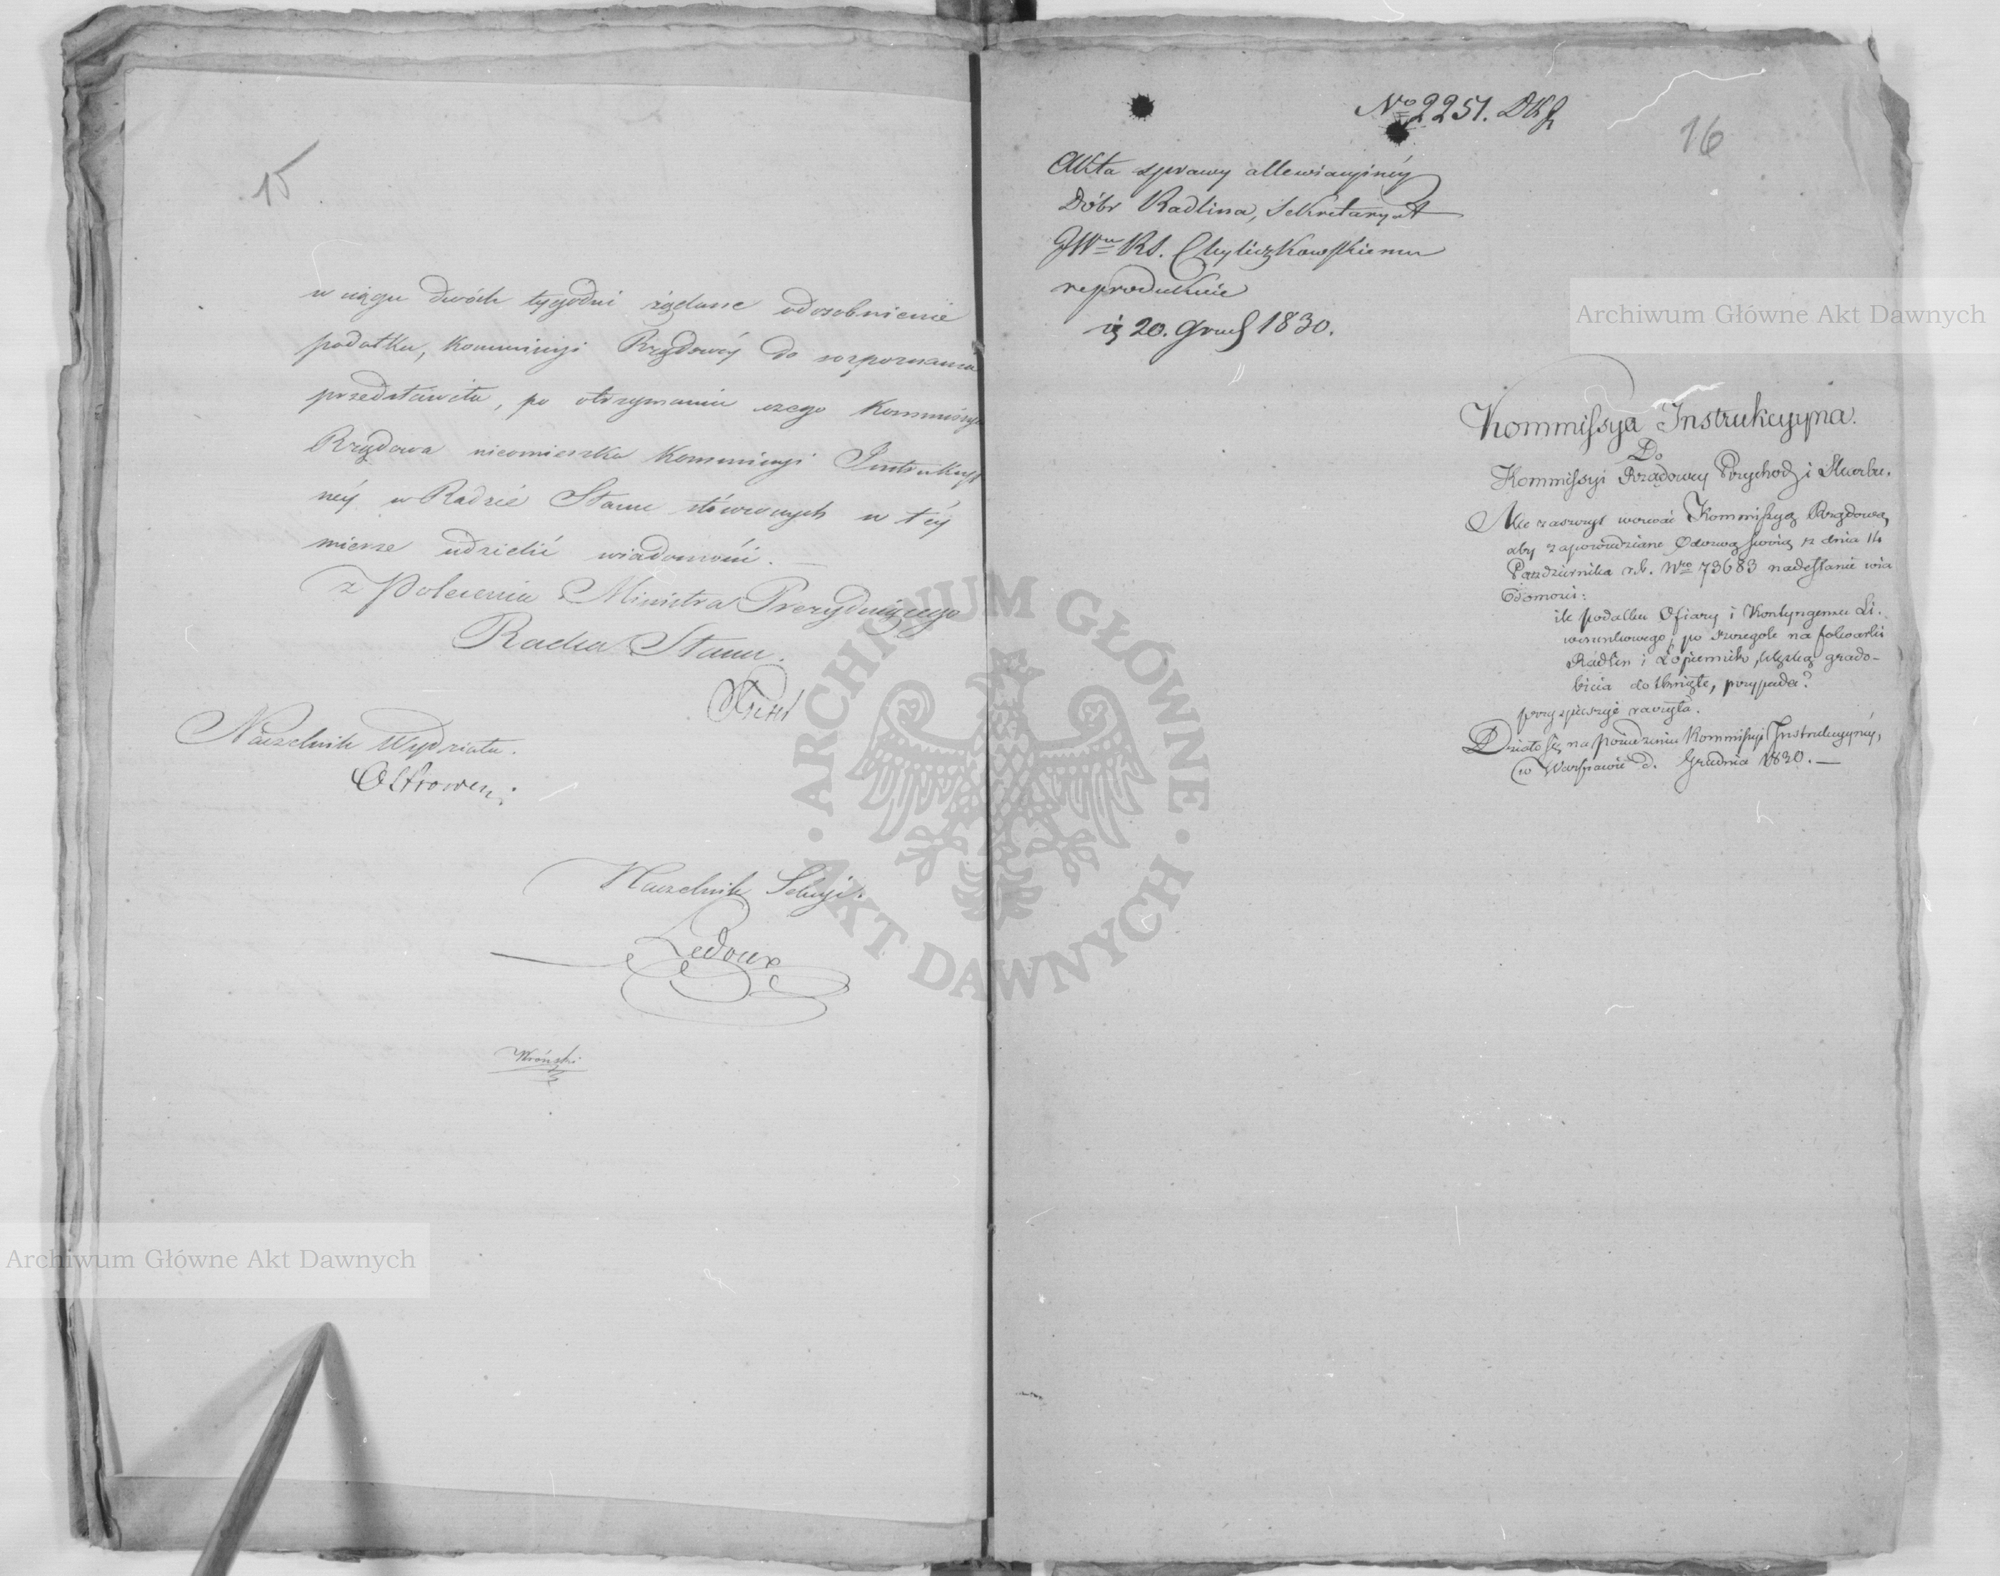 15
w ciągu dwóch tygodni żądane odosobnienie
podatku, Kommissyi Rządowéy do rozpoznania
przedstawiła, po otrzymaniu czego Kommissya
Rządowa nieomieszka Kommissyi Instrukcyi
néy w Radzie Stanu stósownych w téy
mierze udzielić wiadomości. —
z Polecenia Ministra Prezyduiącego
Radca Stanu.
Naczelnik Wydziału.
Naczelnik Sekcyi.
Ledoux
Wroński
No 2251.
16
Akta sprawy allewiacyinéy
Dóbr Radlina, Sekretaryat
JWu Rs. Chyliczkowskiemu
reprodukuie
20. Grud 1830.
Kommissya Instrukcyyna.
Do
Kommissyi Rządowey Przychod: i Skarbu.
Ma zaszczyt wezwać Kommissyą Rządową,
aby zapowiedziane Odezwą swoią z dnia 14
Pazdziernika r.b. Nro 73683 nadesłanie wia
domości:
ile podatku Ofiary i Kontyngensu Li-
werunkowego, po szczegole na folwarki
Radlin i Łopiennik, klęską grado-
bicia dotknięte, przypada?
przyspieszyć raczyła.
Działo się na posiedzeniu Kommissyi Instrukcyyney,
w Warszawie d. Grudnia 1830. —
Archiwum Główne Akt Dawnych
Archiwum Główne Akt Dawnych
ARCHIWUM GŁÓWNE · AKT DAWNYCH ·